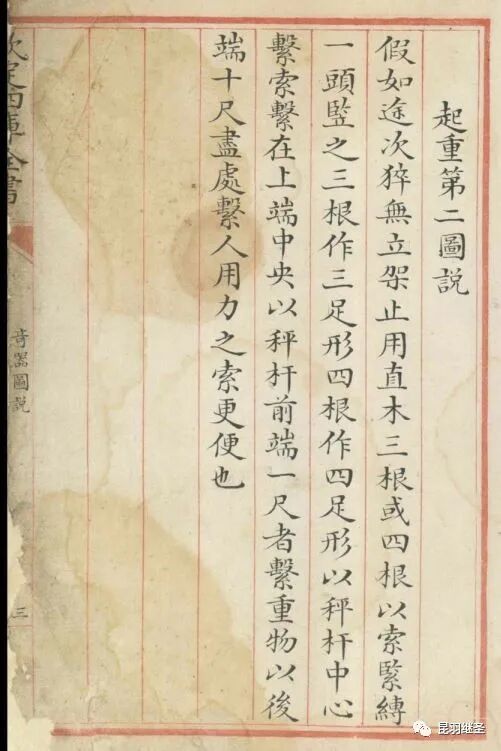 起重第二圖説
假如途次猝無立架止用直木三根或四根以索緊縳
一頭竪之三根作三足形四根作四足形以秤杆中心
繫索繫在上端中央以秤杆前端一尺者繫重物以後
端十尺盡處繫人用力之索更便也
欽定四庫全書
奇器圖説
三
昆羽继圣